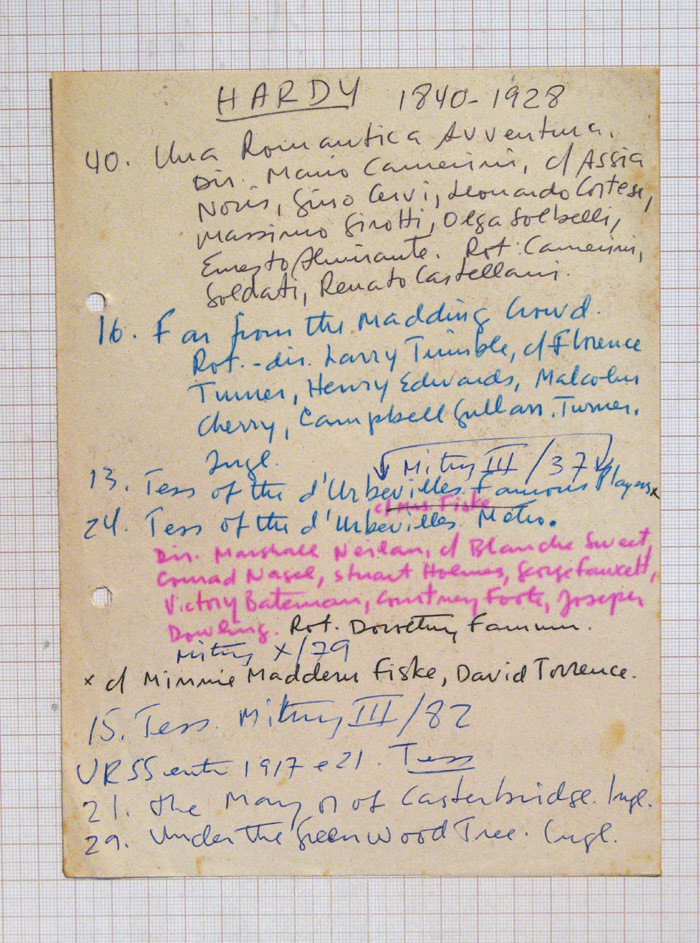 HARDY 1840-1928
40. Una Romantica Avventura.
Dir. Mario Camerini, c/ Assia
Noris, Gino Cervi, Leonardo Cortese,
Massimo Girotti, Olga Solbelli,
Ernesto Almirante. Rot. Camerini,
Soldati, Renato Castellani.
16. Far from the Madding Crowd.
Rot.-dir. Larry Trimble, c/ Florence
Turner, Henry Edwards, Malcolm
Cherry, Campbell Gullan. Turner.
Ingl.
Mitry III/37
13. Tess of the d'Urbevilles. Famous Players x
c/ Mrs Fiske
24. Tess of the d'Urbevilles. Metro.
Dir. Marshall Neilan, c/ Blanche Sweet,
Conrad Nagel, Stuart Holmes, George Fawcett,
Victory Bateman, Courtney Foote, Joseph
Dowling. Rot. Dorothy Farnum.
Mitry X/79
x c/ Minnie Maddern Fiske, David Torrence.
15. Tess. Mitry III/82
URSS entre 1917 e 21. Tess
21. The Mayor of Casterbridge. Ingl.
29. Under the Greenwood Tree. Ingl.